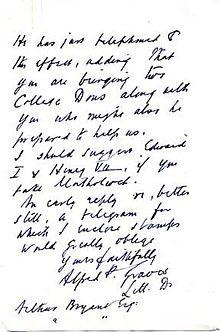 He has just telephoned to
this effect, adding that
you are bringing two
College Dons along with
you who might also be
prepared to help us.
I should suggest Edward
I & Henry VII, if you
take
An early reply or, better
still, a telegram for
which I enclose stamps
would greatly oblige
Yours faithfully
Alfred P. Graves
Litt. D.
Arthur Bryant Esq.
" "